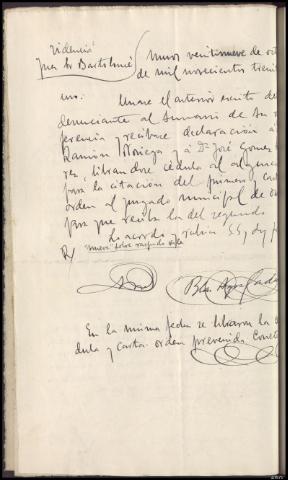 Videncia
Juez Sr Bartolomé
Muros veintinueve de oct
de mil novecientos trein
uno:
Unase el anterior escrito de
denunciante al sumario de su re
ferencia y recibase declaración á
Ramón Noriega y á Dn José Gomez
rez, librandose cédula al alguaci
para la citación del primero y cart
orden al juzgado municipal de
para que reciba la del segundo.
Lo acordo y rubrica SSª doy f
R/ nueve sobre raspado vale
En la misma fecha se libraron la
dula y carta orden prevenida. Const